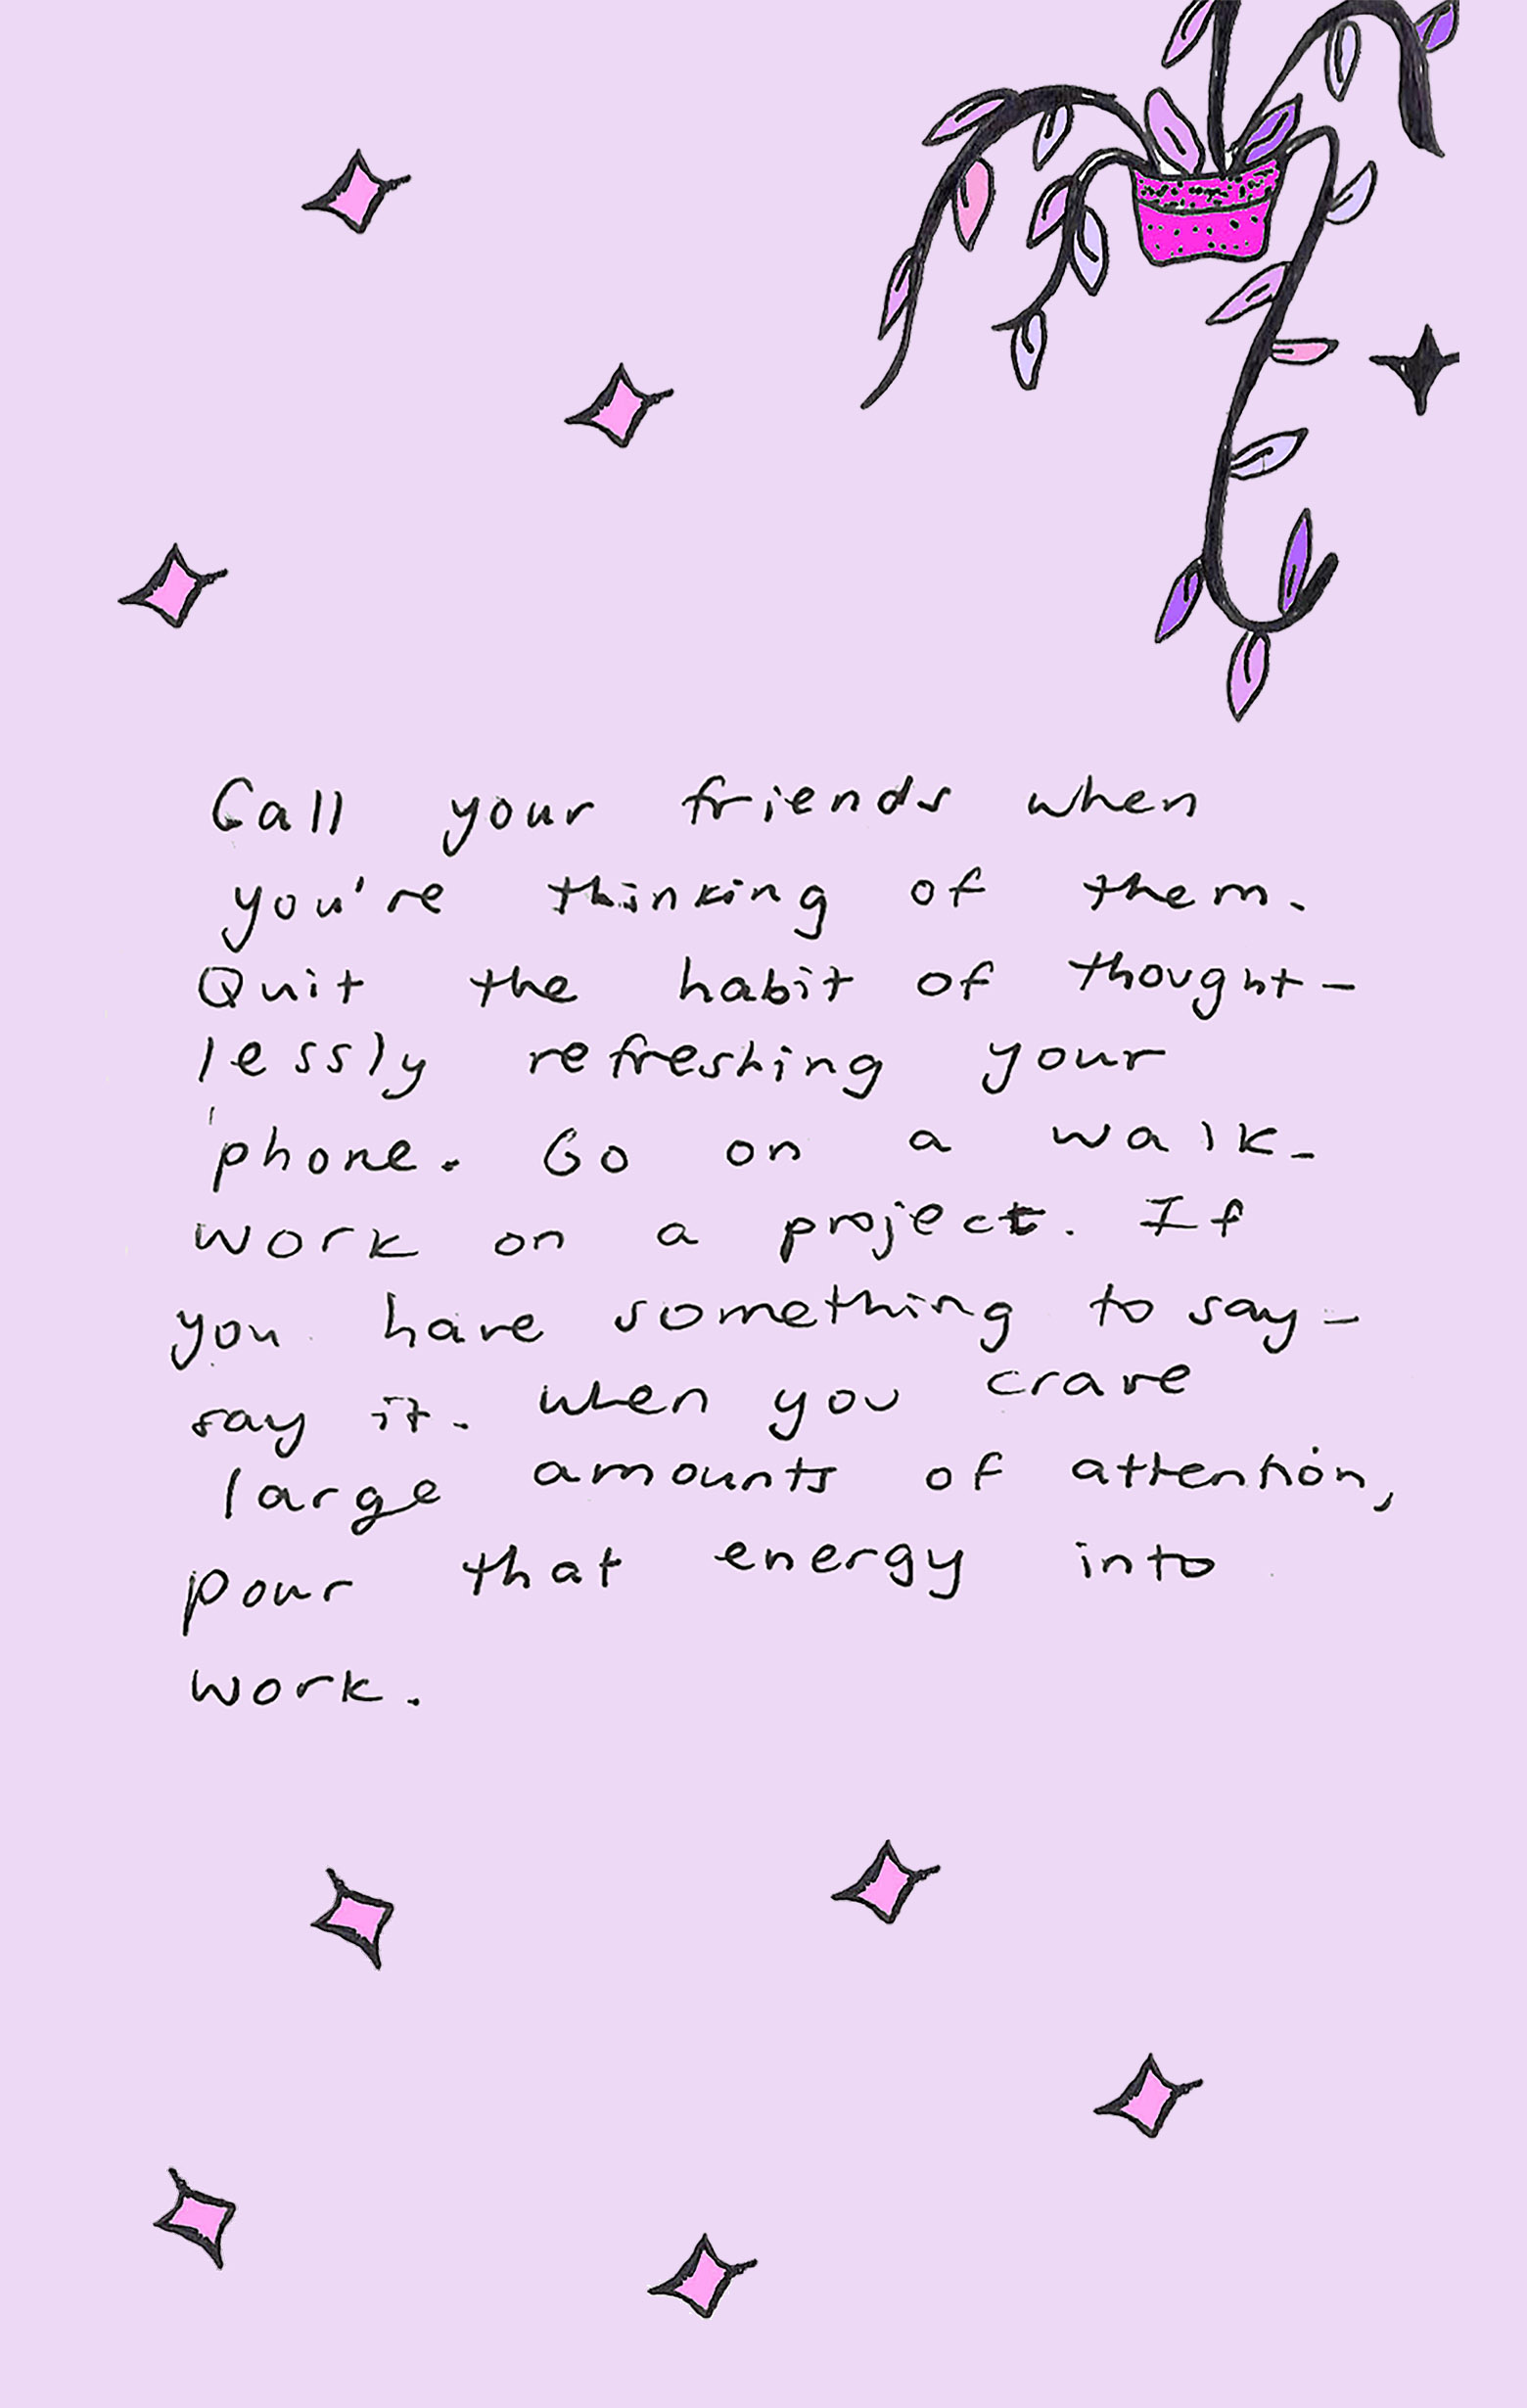 Call your friends when
you're thinking of them.
Quit the habit of thought-
lessly refreshing your
phone. Go on a walk.
Work on a project. If
you have something to say-
say it. When you crave
large amounts of attention,
pour that energy into
work.